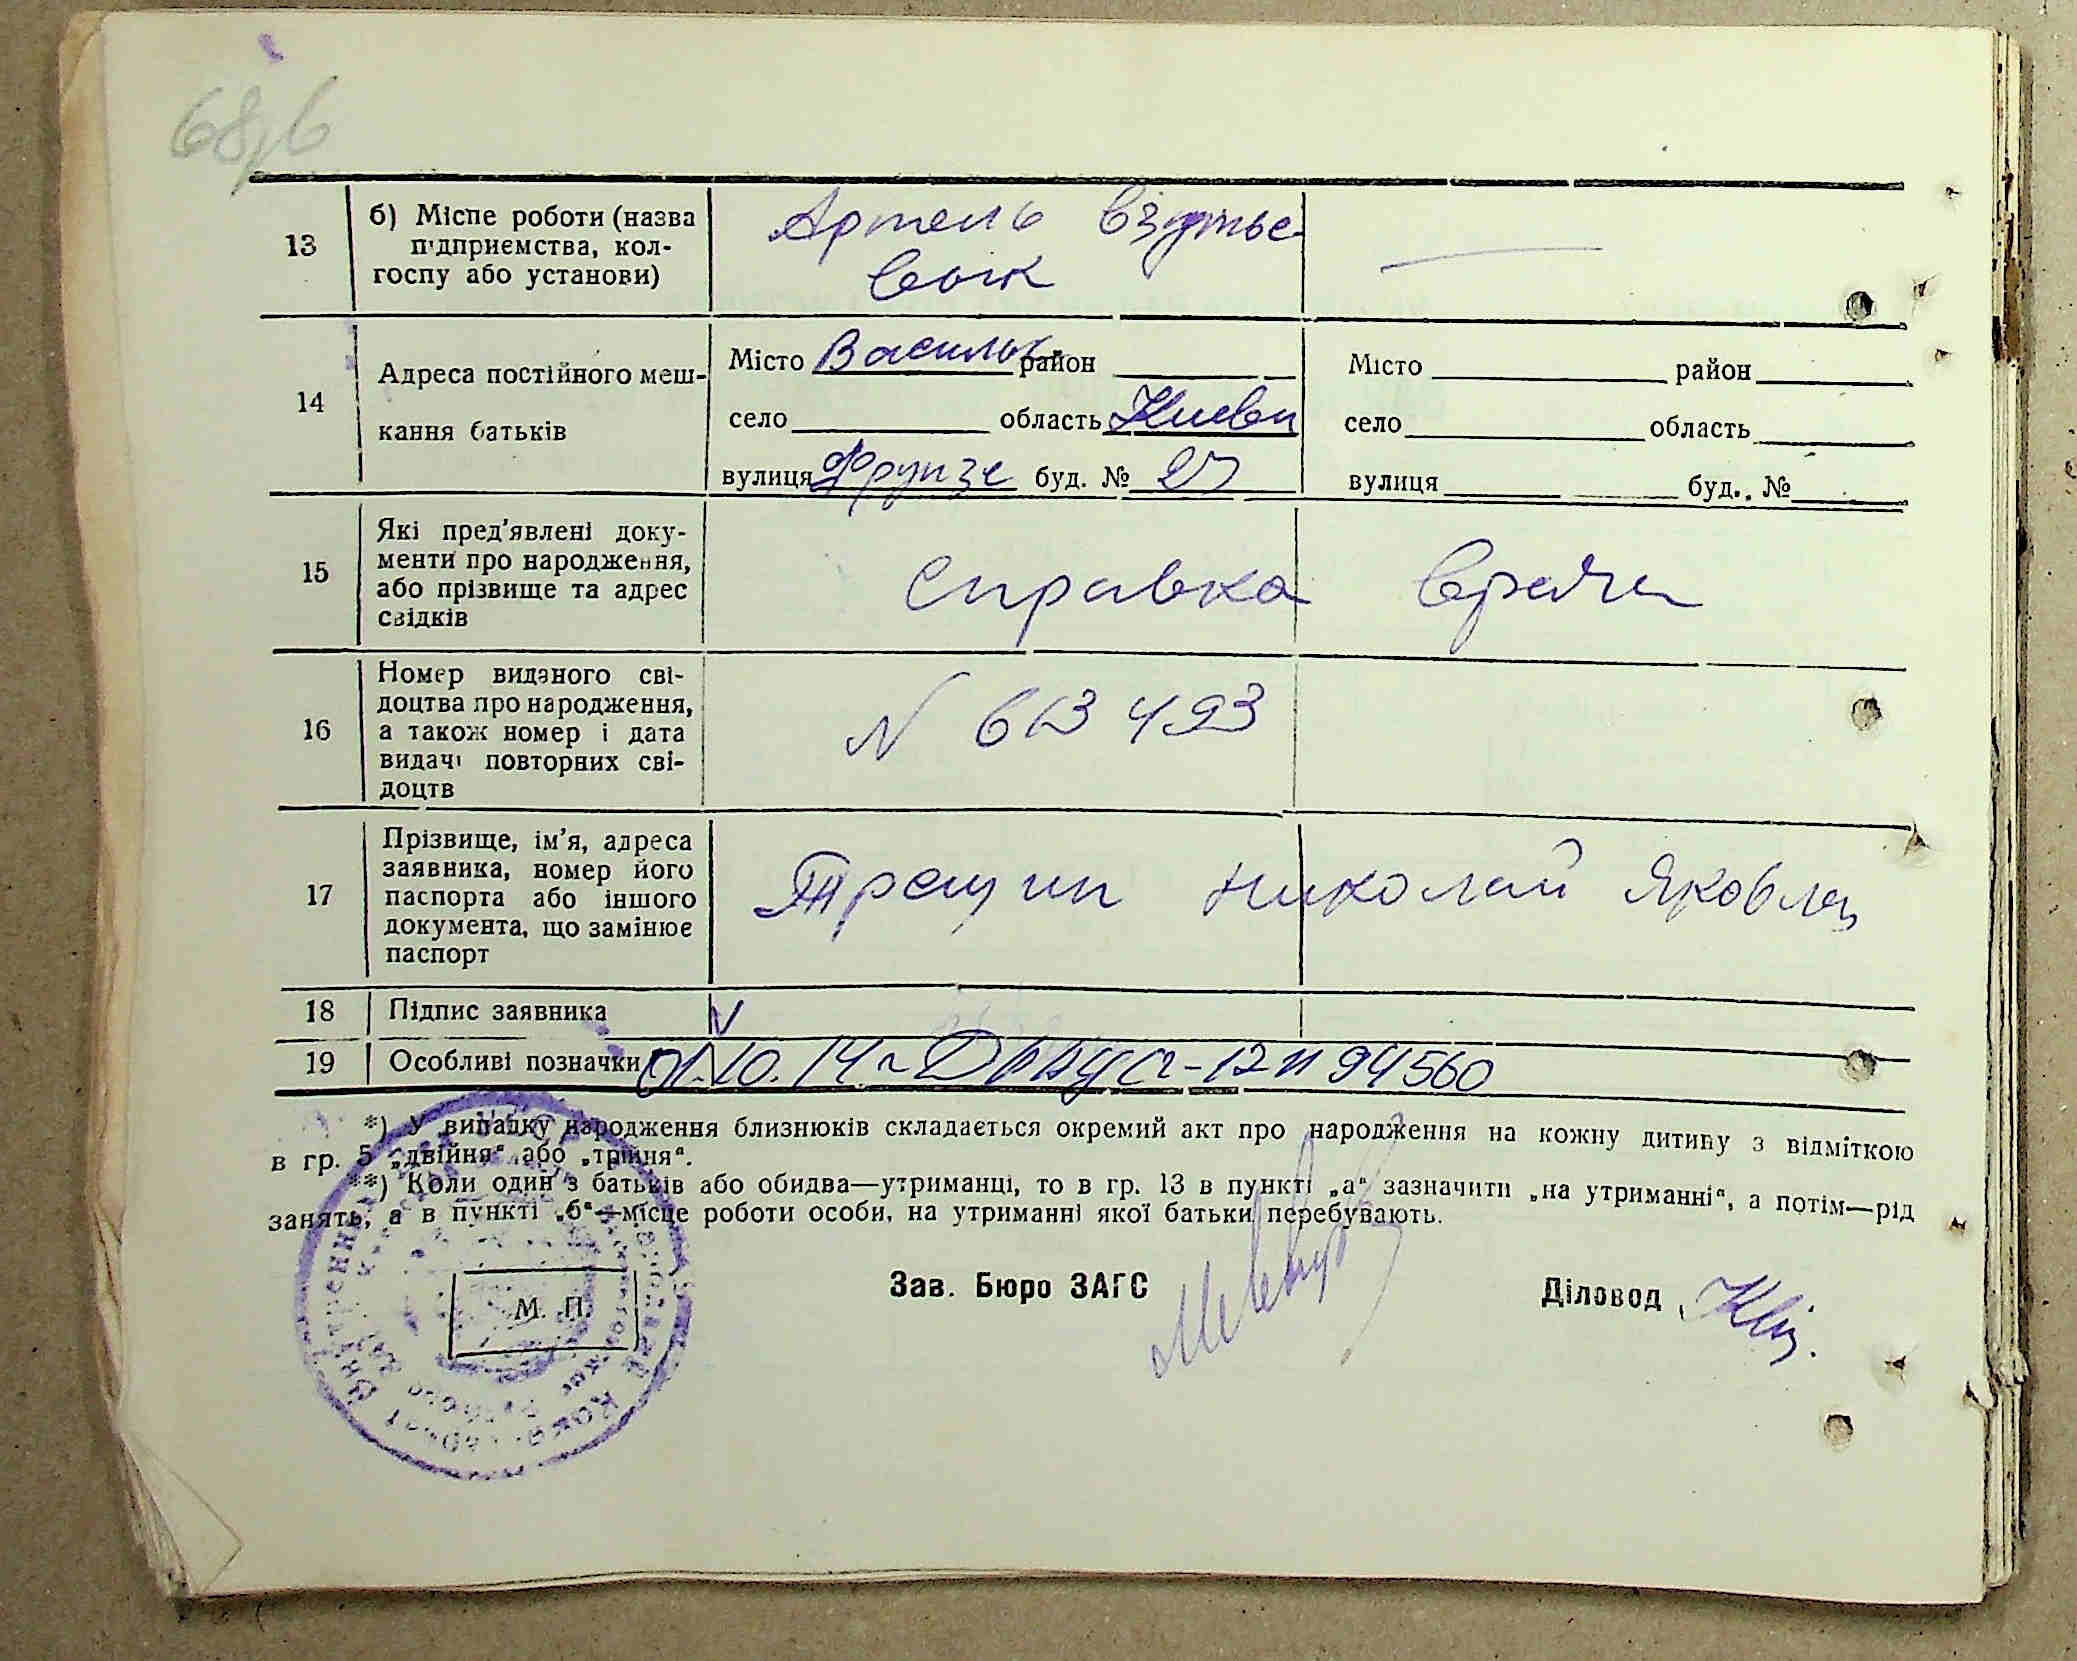 68/6
13
б) Місце роботи (назва
підприємства, кол-
госпу або установи)
Артель взуттьє
вик
14
Адреса постійного меш-
кання батьків
Місто Васильк район
село область Київ
вулиця Фрунзе буд. № 27
Місто район
село область
вулиця буд. №
15
Які пред'явлені доку-
менти про народження,
або прізвище та адрес
свідків
Справка врача
16
Номер виданого сві-
доцтва про народження,
а також номер і дата
видачі повторних сві-
доцтв
N 613 493
17
Прізвище, ім'я, адреса
заявника, номер його
паспорта або іншого
документа, що замінює
паспорт
Трещин Николай Яковлев
18
Підпис заявника
V
19
Особливі позначки
94560
*) У випадку народження близнюків складається окремий акт про народження на кожну дитину з відміткою
в гр. 5 „двійня“ або „трійня“.
**) Коли один з батьків або обидва—утриманці, то в гр. 13 в пункті „а“ зазначити „на утриманні“, а потім—рід
занять, а в пункті „б“—місце роботи особи, на утриманні якої батьки перебувають.
М. П.
Зав. Бюро ЗАГС
Діловод